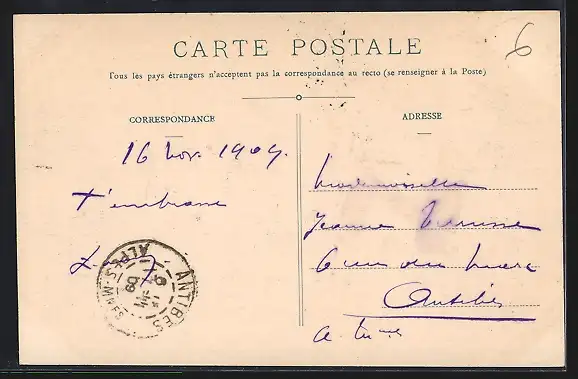 CARTE POSTALE
Tous les pays étrangers n'acceptent pas la correspondance au recto (se renseigner à la Poste)
6
CORRESPONDANCE
16 Nov. 1909.
t'embrasse
ADRESSE
Mademoiselle
Jeanne
6 rue du
Antibes
A. Mmes
ANTIBES
ALPES-MMES
09